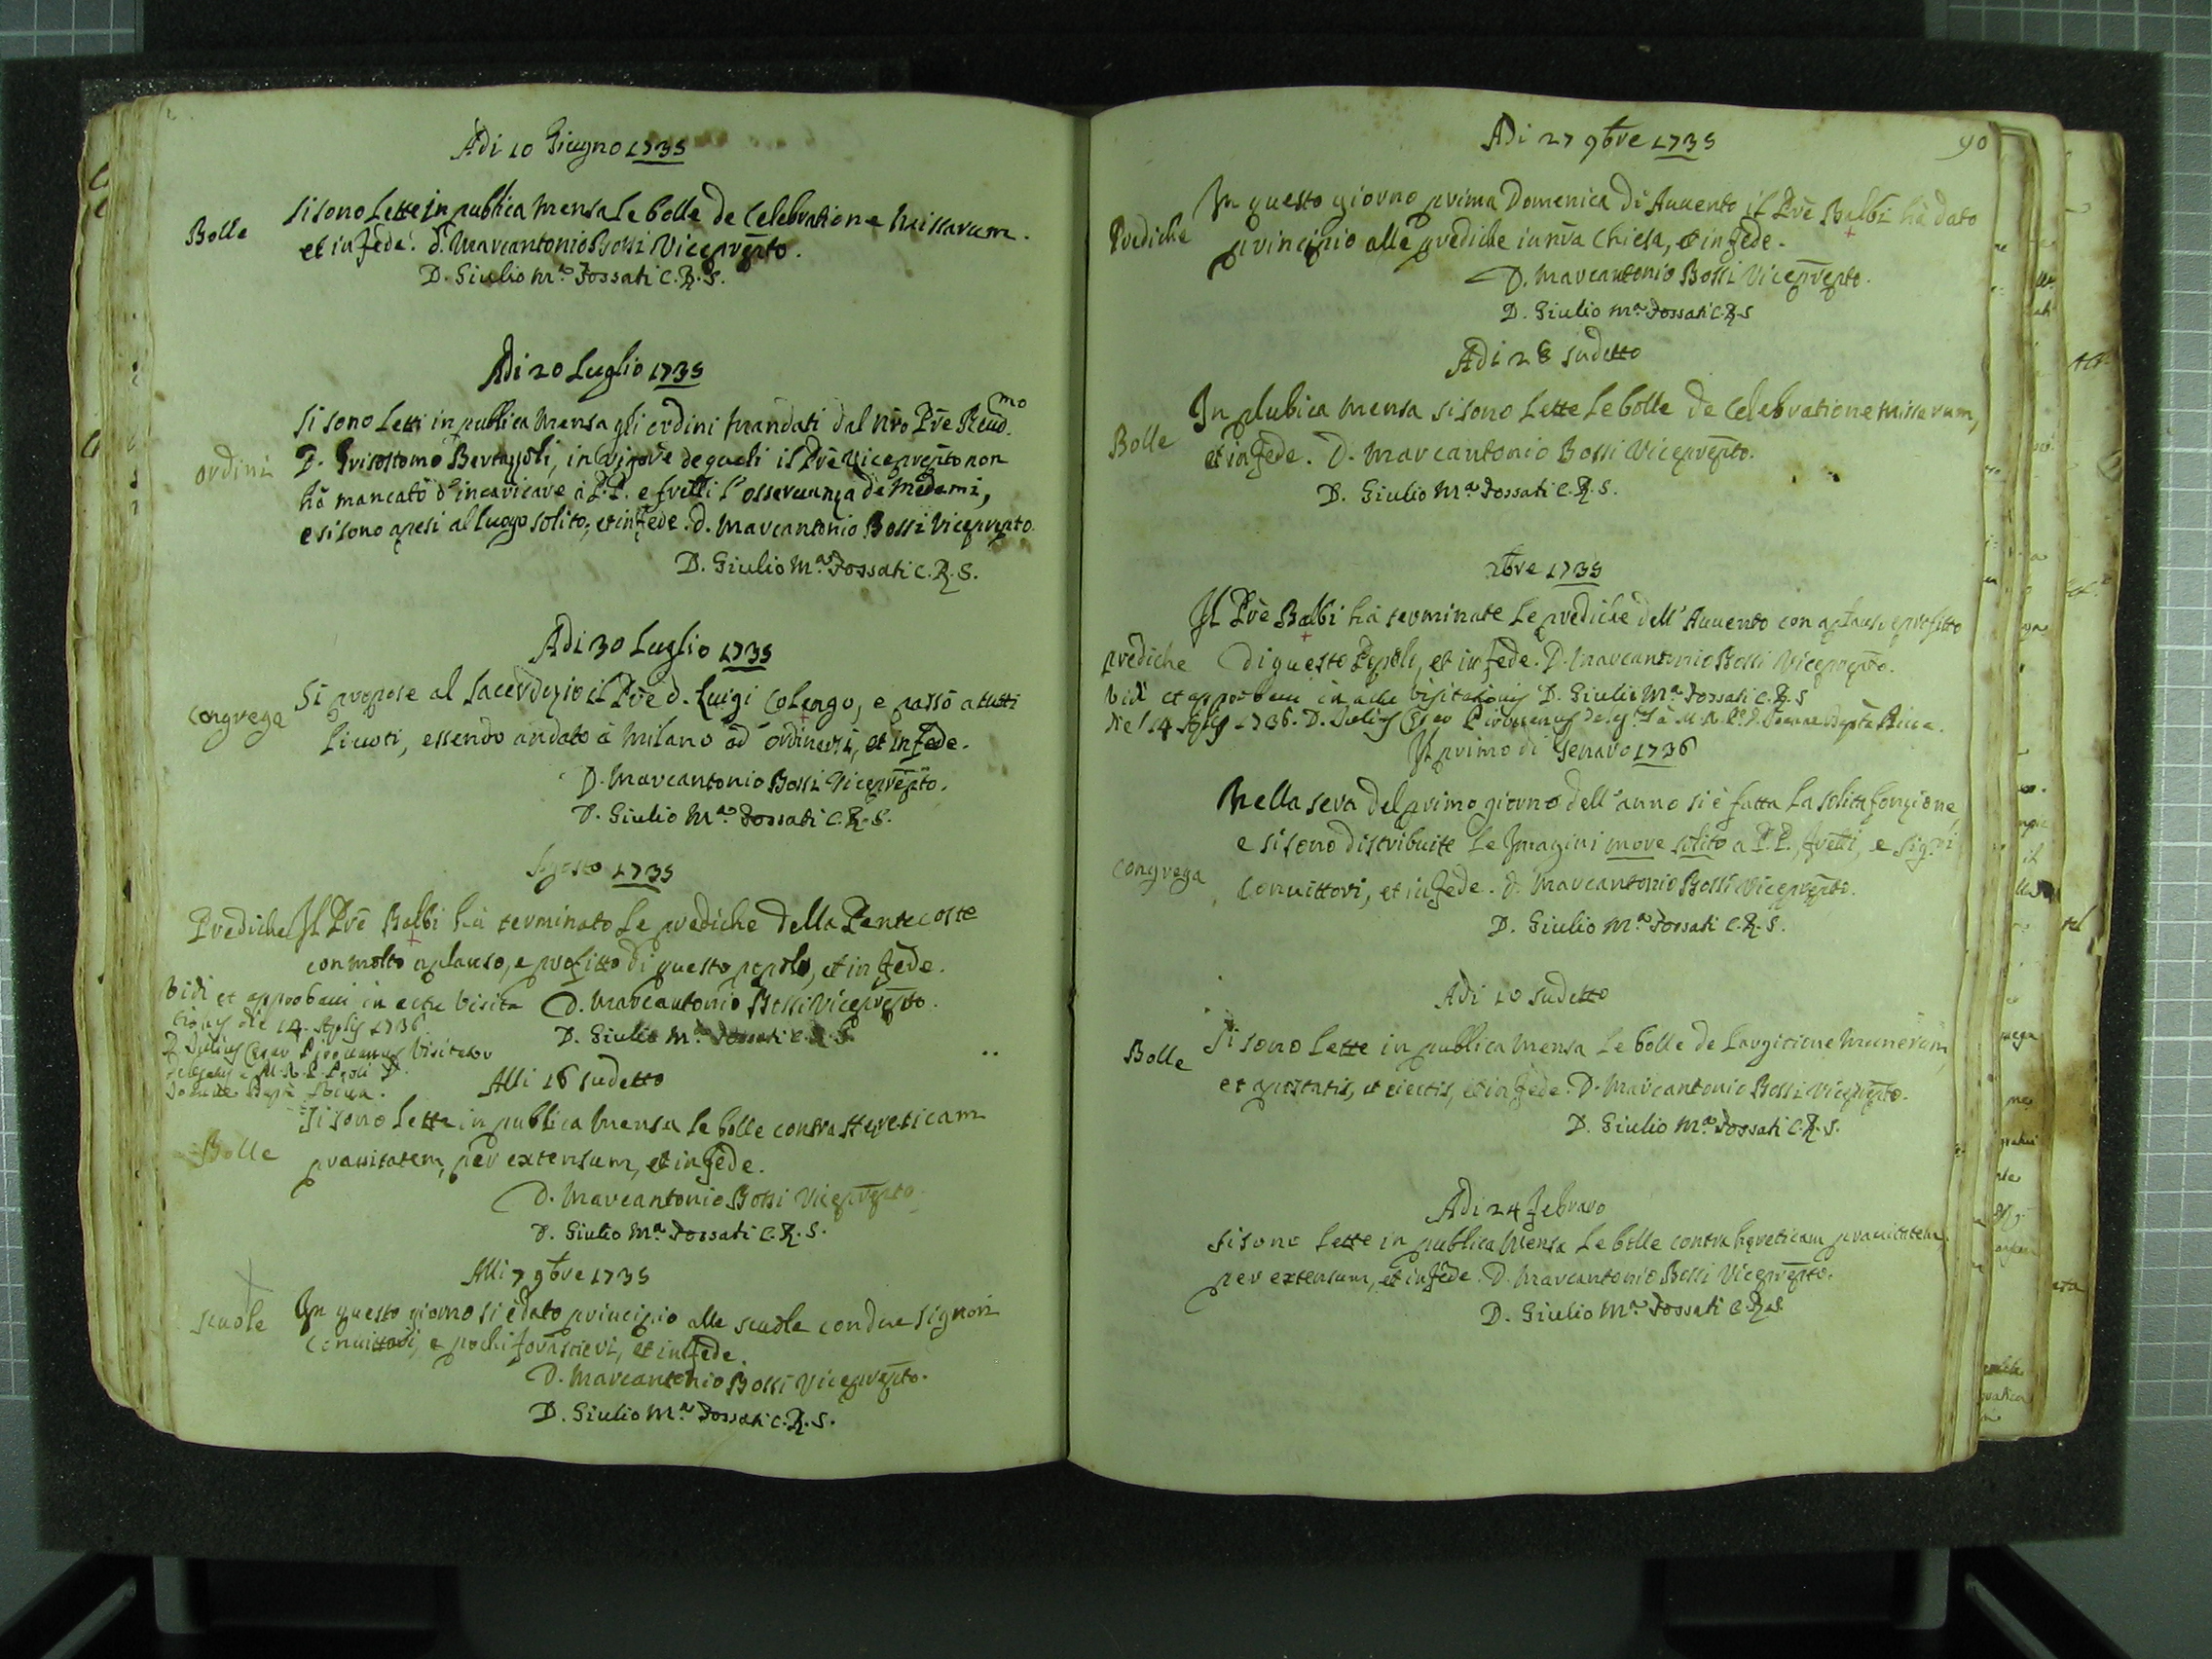 Adi 10 Giugno 1735
Bolle
Si sono Lette in publica mensa Le bolle de Celebratione Missarum.
et in fede. d. Marcantonio Bossi Viceprepto.
D. Giulio Ma. Fossati C.R.S.
Adi 20 Luglio 1735
ordini
Si sono Letti in publica mensa gli ordini mandati dal nro Pre Reud.mo
D. Grisostomo Bertazzoli, in vigore de quali il Pre Viceprepto non
hà mancato d'incaricare a P.P. e frelli l'osseruanza de medemi,
e si sono apesi al luogo solito, et in fede. d. Marcantonio Bossi Viceprepto.
D. Giulio Ma. Fossati C.R.S.
Adi 30 Luglio 1735
Congrega
Si propose al Sacerdozio il Pre d. Luigi Colengo, e passò a tutti
li uoti, essendo andato à Milano ad ordinarsi, et in fede.
D. Marcantonio Bossi Viceprepto.
D. Giulio Ma. Fossati C.R.S.
Agosto 1735
Prediche
Il Pre Balbi hà terminato Le prediche della Pentecoste
con molto aplauso, e profitto di questo popolo, et in fede.
D. Marcantonio Bossi Viceprepto.
D. Giulio Ma. Fossati C.R.S.
Vidi et approbaui in actu Visita
tionis die 14. Aplis 1736
Visitator
Alli 16 sudetto
Bolle
Si sono Lette in publica mensa le bolle contra Hereticam
prauitatem, per extensum, et in fede.
D. Marcantonio Bossi Viceprepto.
D. Giulio Ma. Fossati C.R.S.
Alli 7 9bre 1735
scuole
In questo giorno si è dato principio alle scuole con due signori
Conuittori, e pochi forastieri, et in fede.
D. Marcantonio Bossi Viceprepto.
D. Giulio Ma. Fossati C.R.S.
90
Adi 27 9bre 1735
Prediche
In questo giorno prima Domenica di Auuento il Pre Balbi hà dato
principio alle prediche in nra Chiesa, et in fede.
D. Marcantonio Bossi Viceprepto.
D. Giulio Ma. Fossati C.R.S
Adi 28 sudetto
Bolle
In plubica mensa si sono Lette Le bolle de Celebratione missarum,
et in fede. D. Marcantonio Bossi Viceprepto.
D. Giulio Ma. Fossati C.R.S.
Xbre 1735
prediche
Il Pre Balbi hà terminate Le prediche dell'Auuento con aplauso e profitto
di questo Popolo, et in fede. D. Marcantonio Bossi Viceprepto.
Vidi et approbaui in actu Visitationis D. Giulio Ma. Fossati C.R.S
die 14 Aplis 1736.
Il primo di Genaro 1736
Congrega
Nella sera del primo giorno dell'anno si è fatta La solita fonzione,
e si sono distribuite Le Imagini more solito a P.P., frelli, e Sig.ri
Conuittori, et in fede. d. Marcantonio Bossi Viceprepto.
D. Giulio Ma. Fossati C.R.S.
Adi 10 sudetto
Bolle
Si sono Lette in publica mensa Le bolle de Largitione munerum,
et apostatis, et eiectis, et in fede. D. Marcantonio Bossi Viceprepto.
D. Giulio Ma. Fossati C.R.S.
Adi 24 febraro
Si sono Lette in publica mensa Le bolle contra hereticam prauitatem,
per extensum, et in fede. D. Marcantonio Bossi Viceprepto.
D. Giulio Ma. Fossati C.R.S.